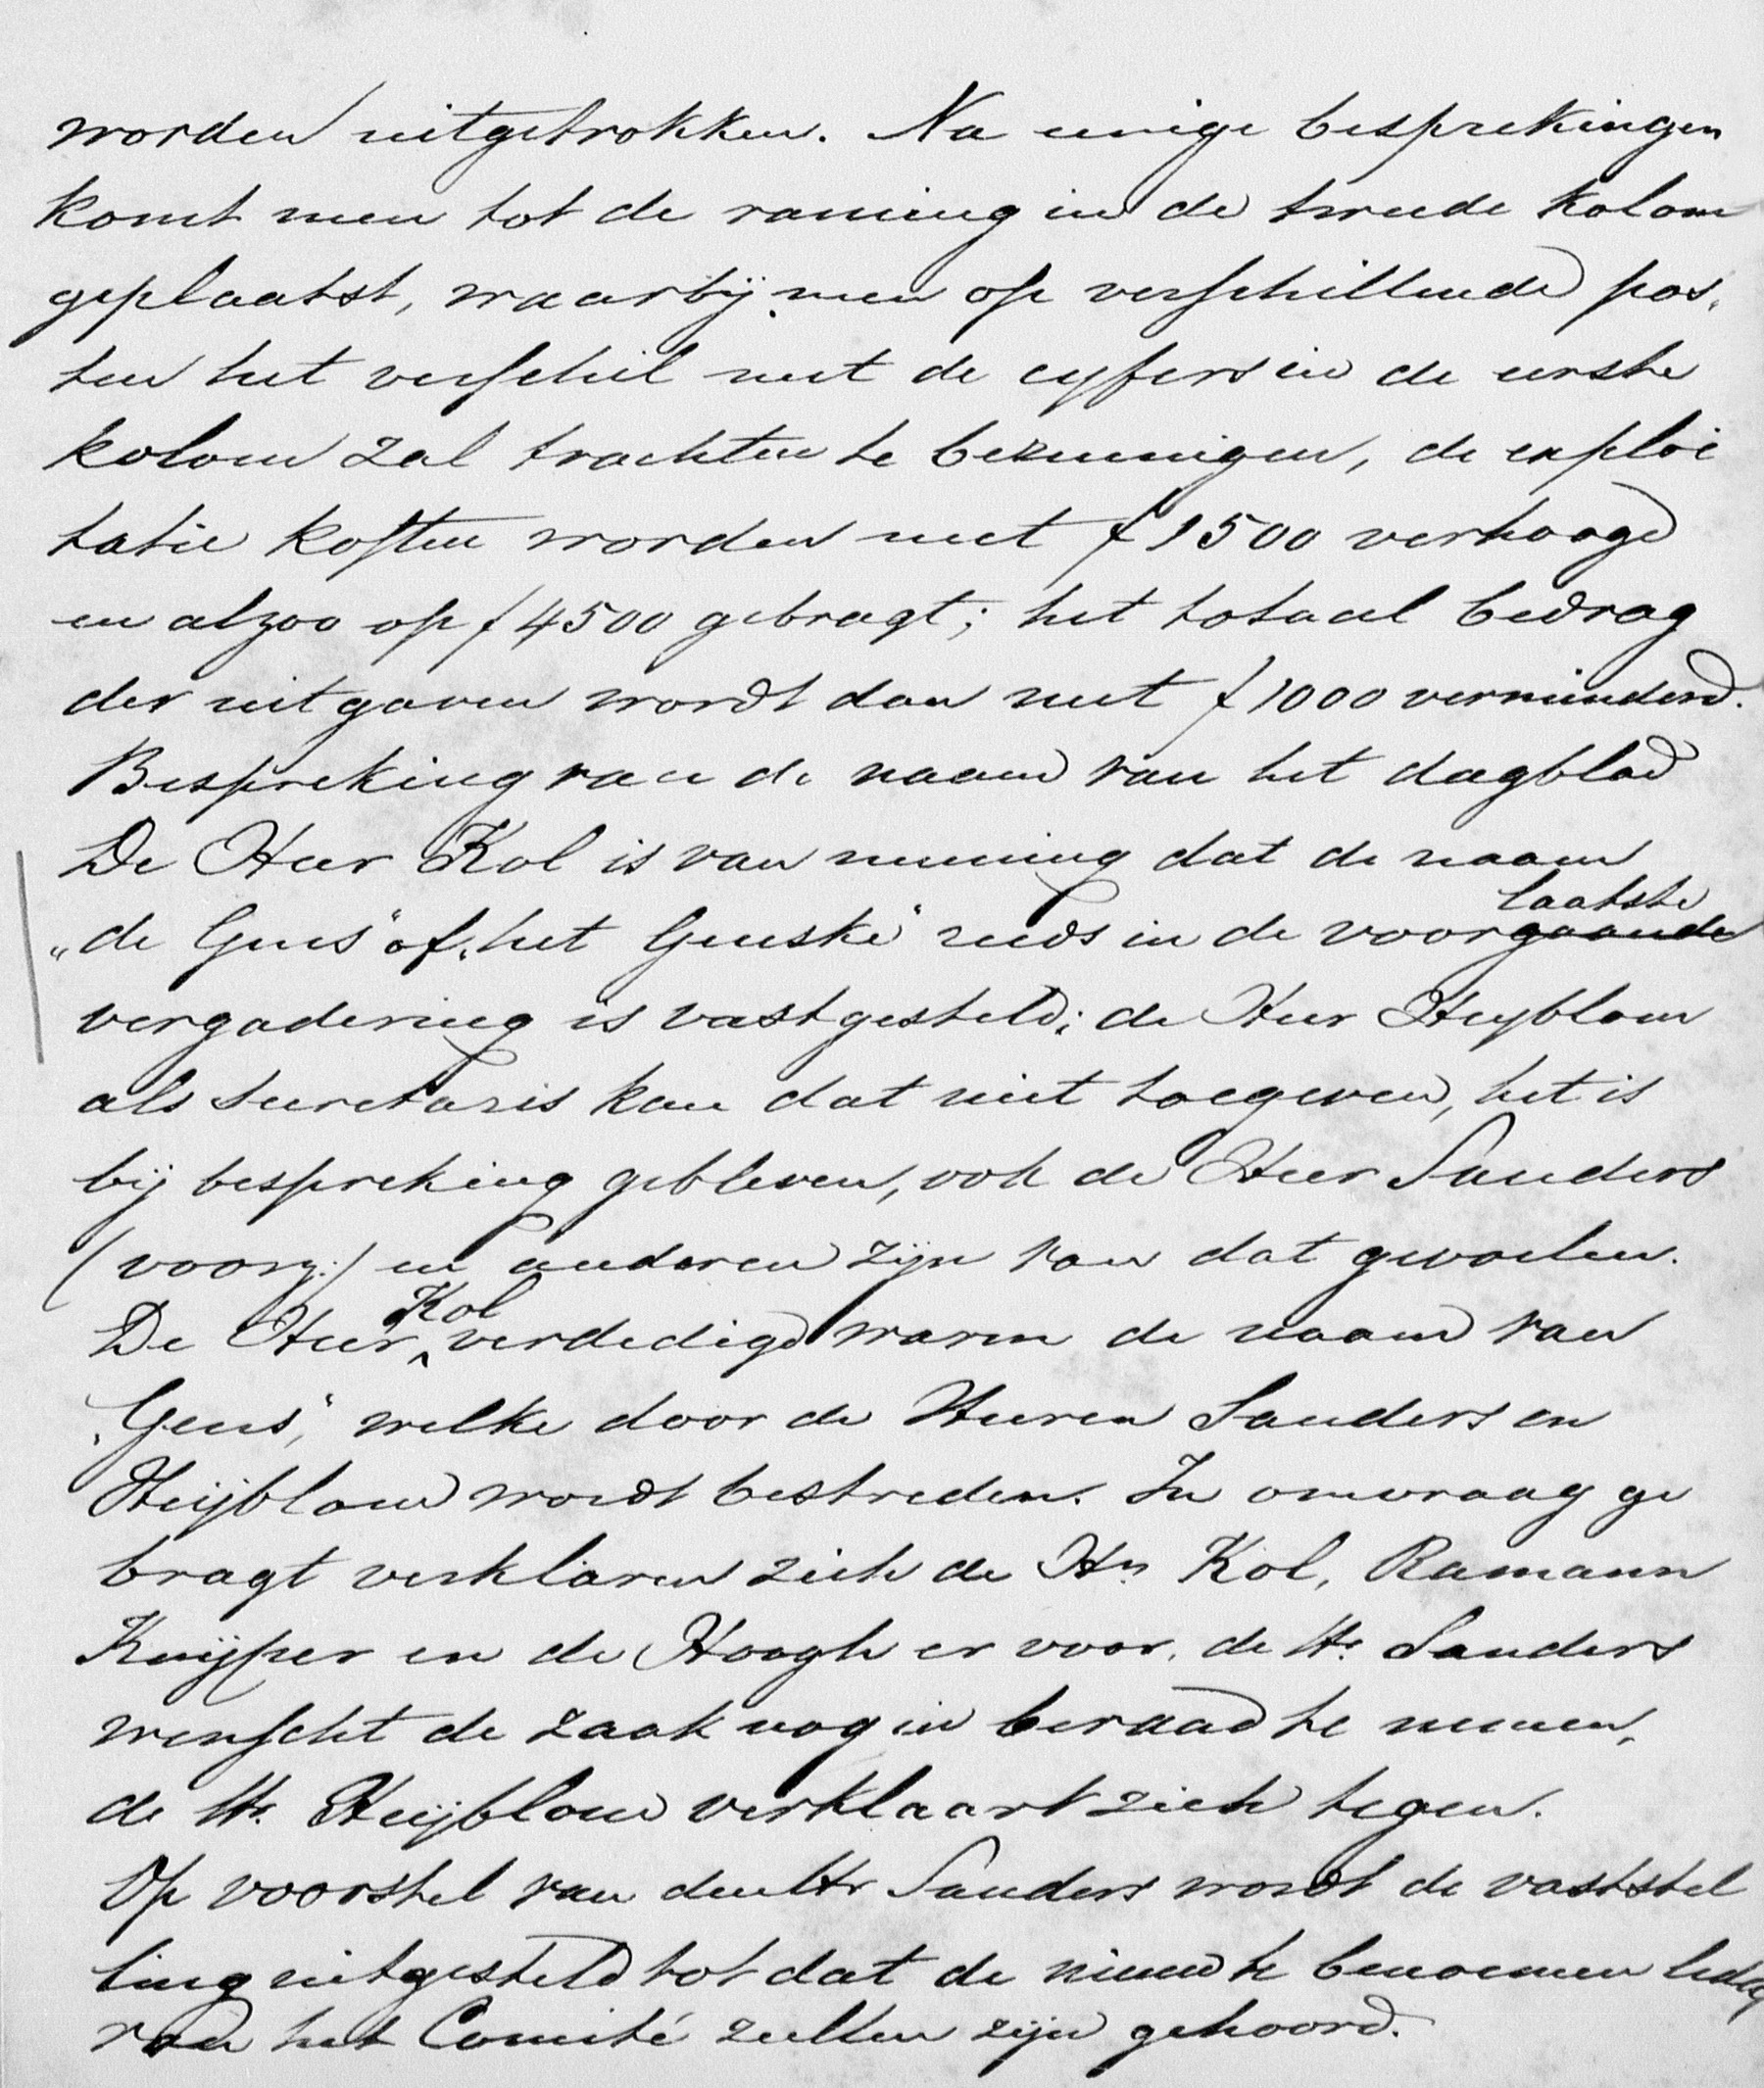 worden uitgetrokken. Na eenige besprekingen
komt men tot de raming in de tweede kolom
geplaatst, waarbij men op verschillende pos-
ten het verschil met de cyfers in de eerste
kolom zal trachten te bezuinigen, de exploi
tatie kosten worden met f 1500 verhoogd
en alzoo op f 4500 gebragt; het totaal bedrag
der uitgaven wordt dan met f 1000 verminderd.
Bespreking van de naam van het dagblad
De Heer Kol is van meening dat de naam
laatste
„de Geus" of „het Geuske" reeds in de voorgaande
vergadering is vastgesteld; de Heer Heyblom
als secretaris kan dat niet toegeven, het is
bij bespreking gebleven, ook de Heer Sanders
(voorz:) en anderen zijn van dat gevoelen.
Kol
De Heer ^ verdedigd warm de naam van
„Geus", welke door de Heeren Sanders en
Heijblom wordt bestreden. In omvraag ge
bragt verklaren zich de Hn Kol, Ramann
Kuijper en de Hoogh er voor, de Hr. Sanders
wenscht de zaak nog in beraad te nemen,
de Hr. Heijblom verklaart zich tegen.
Op voorstel van den Hr Sanders wordt de vaststel
ling uitgesteld tot dat de nieuw te benoemen leden
van het Comité zullen zijn gehoord.